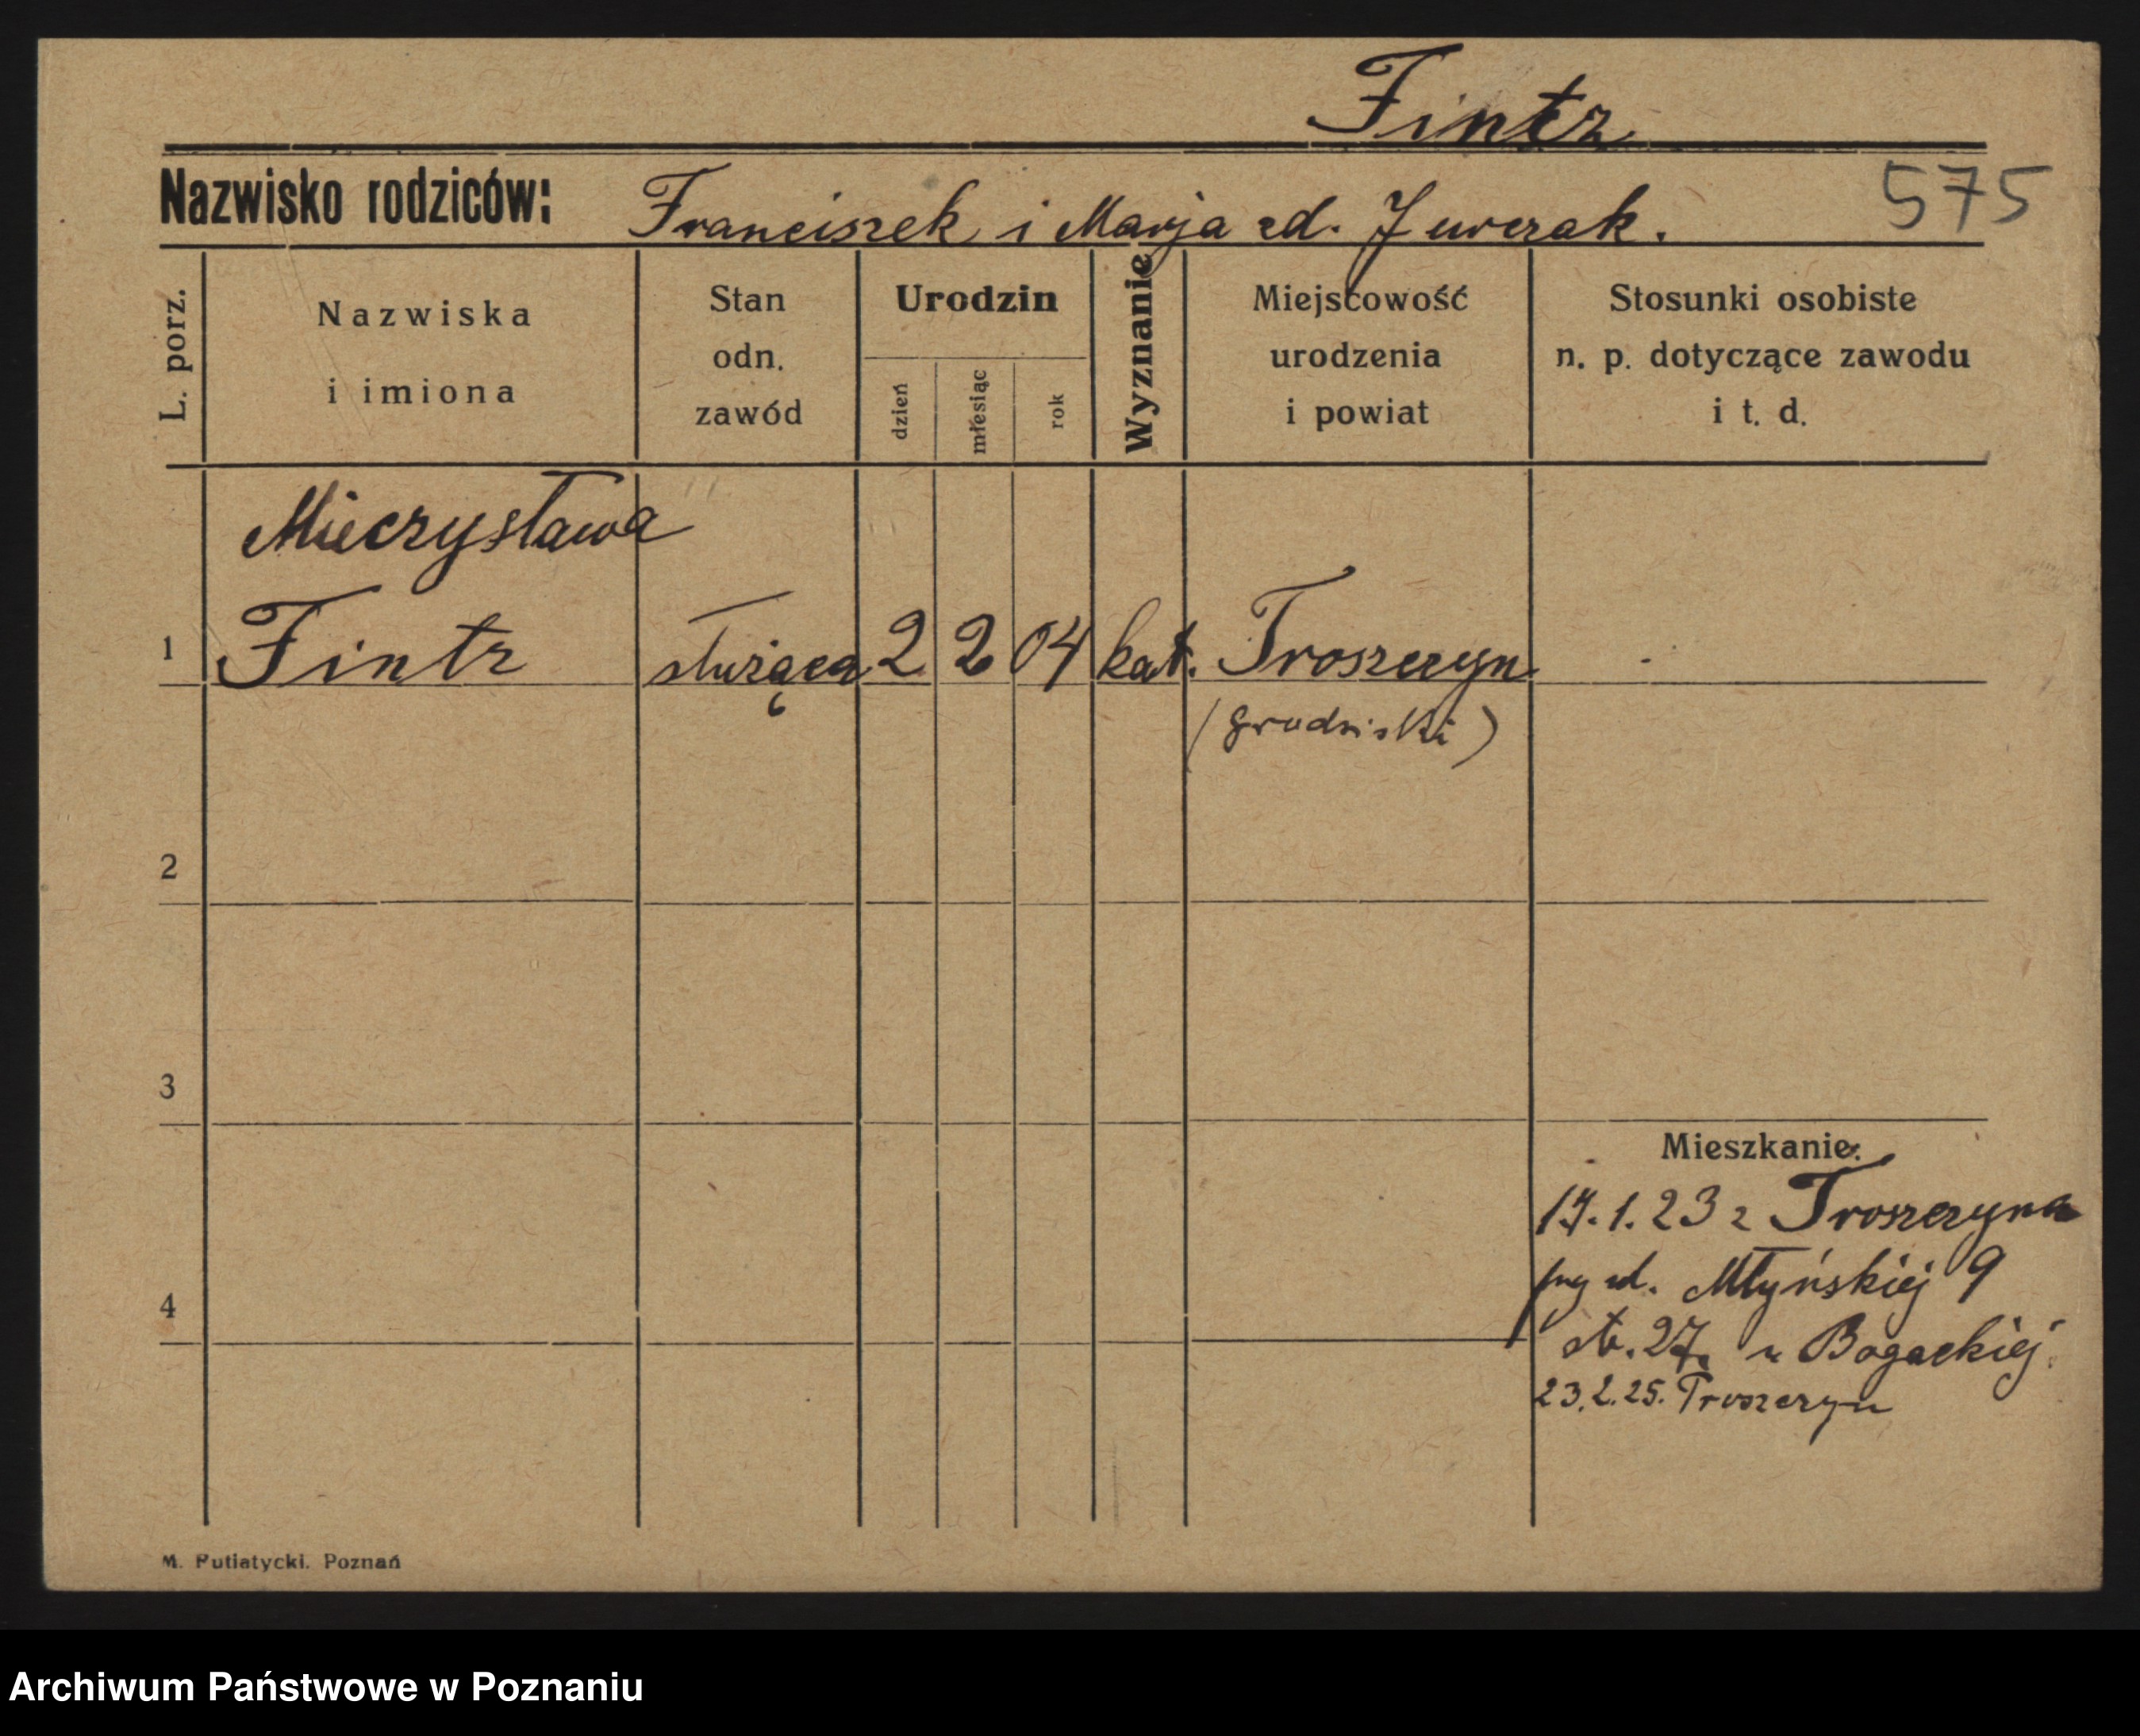 Fintz
575
Nazwisko rodziców: Franciszek i Marja zd. Jurczak.
L. porz.
Nazwiska
i imiona
Stan
odn.
zawód
Urodzin
dzień
miesiąc
rok
Wyznanie
Miejscowość
urodzenia
i powiat
Stosunki osobiste
n. p. dotyczące zawodu
i t. d.
Mieczysława
1 Fintz służąca 2 2 04 kat. Troszczyn
(grodziski)
2
3
4
Mieszkanie:
17.1.23 z Troszczyna
Młyńskiej 9
27. u Bogackiej.
23.2.25. Troszczyn
M. Putiatycki. Poznań
Archiwum Państwowe w Poznaniu